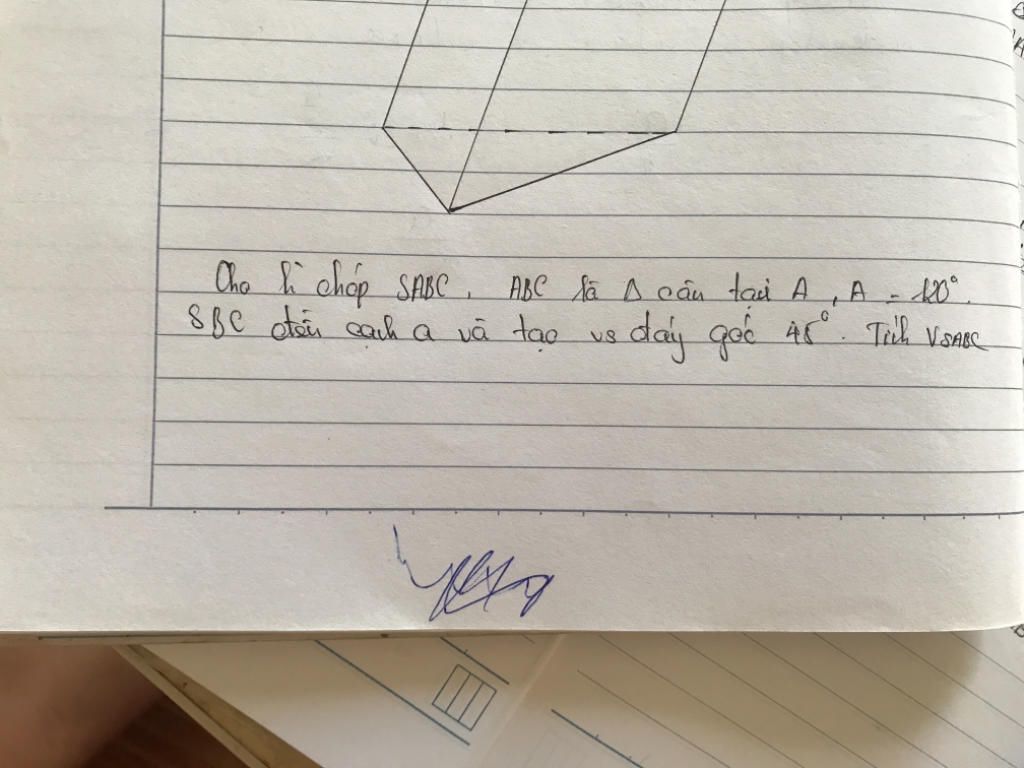 Cho h̀ chóp SABC, ABC là Δ cân tại A, A = 120°.
SBC đều cạnh a và tạo vs đáy góc 45°. Tính VSABC